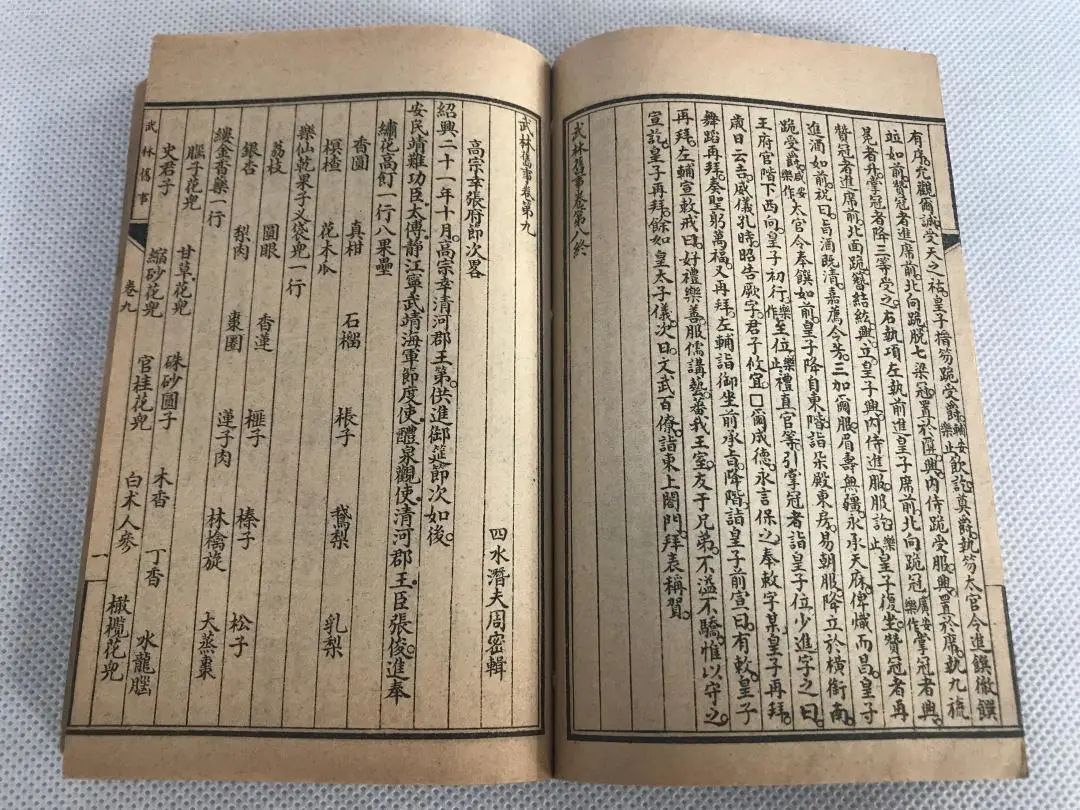 有序。允觀爾誠。受天之祜。皇子搢笏跪受爵。輔安樂止飲訖。奠爵。執笏。太官令進饌徹饌
竝如前。贊冠者進席前。北向跪脫七梁冠。置於匴。興。內侍跪受服。興。置於席。執九旒
冕者升。掌冠者降三等受之。右執項左執前。進皇子席前。北向跪冠。廣安樂作掌冠者興。
贊冠者進席前北面跪。贊結紘。興。立。皇子興。內侍進服。服訖。樂止皇子復坐。贊冠者再
進酒如前。祝曰。旨酒既清。嘉薦令芳。三加爾服。眉壽無疆。永承天庥。俾熾而昌。皇子
跪受爵。咸安樂作太官令奉饌如前。皇子降自東階。詣朵殿東房。易朝服。降立於橫街南。
王府官階下西向。皇子初行。樂作至位。樂止禮直官等引掌冠者詣皇子位少進字之曰。
歲日云吉。威儀孔時。昭告厥字。君子攸宜。□爾成德。永言保之。奉敕字某。皇子再拜。
舞蹈再拜。奏聖躬萬福。又再拜。左輔詣御坐前承旨。降階詣皇子前宣曰。有敕。皇子
再拜。左輔宣敕戒曰。好禮樂善。服儒講藝。蕃我王室。友于兄弟。不溢不驕。惟以守之。
宣訖。皇子再拜。餘如皇太子儀。次日文武百僚詣東上閤門。拜表稱賀。
武林舊事卷第八終
武林舊事卷第九
四水潛夫周密輯
高宗幸張府節次畧
紹興二十一年十月。高宗幸清河郡王第。供進御筵節次如後。
安民靖難功臣。太傅。靜江寧武靖海軍節度使。醴泉觀使。清河郡王。臣張俊進奉
繡花高飣一行八果壘
香圓 真柑 石榴 棖子 鵞梨 乳梨
榠樝 花木瓜
樂仙乾果子乂袋兜一行
荔枝 圓眼 香蓮 榧子 榛子 松子
銀杏 梨肉 棗圈 蓮子肉 林檎旋 大蒸棗
縷金香藥一行
腦子花兜 甘草花兜 硃砂圓子 木香 丁香 水龍腦
史君子 縮砂花兜 官桂花兜 白朮人參 橄欖花兜
武林舊事 卷九 一